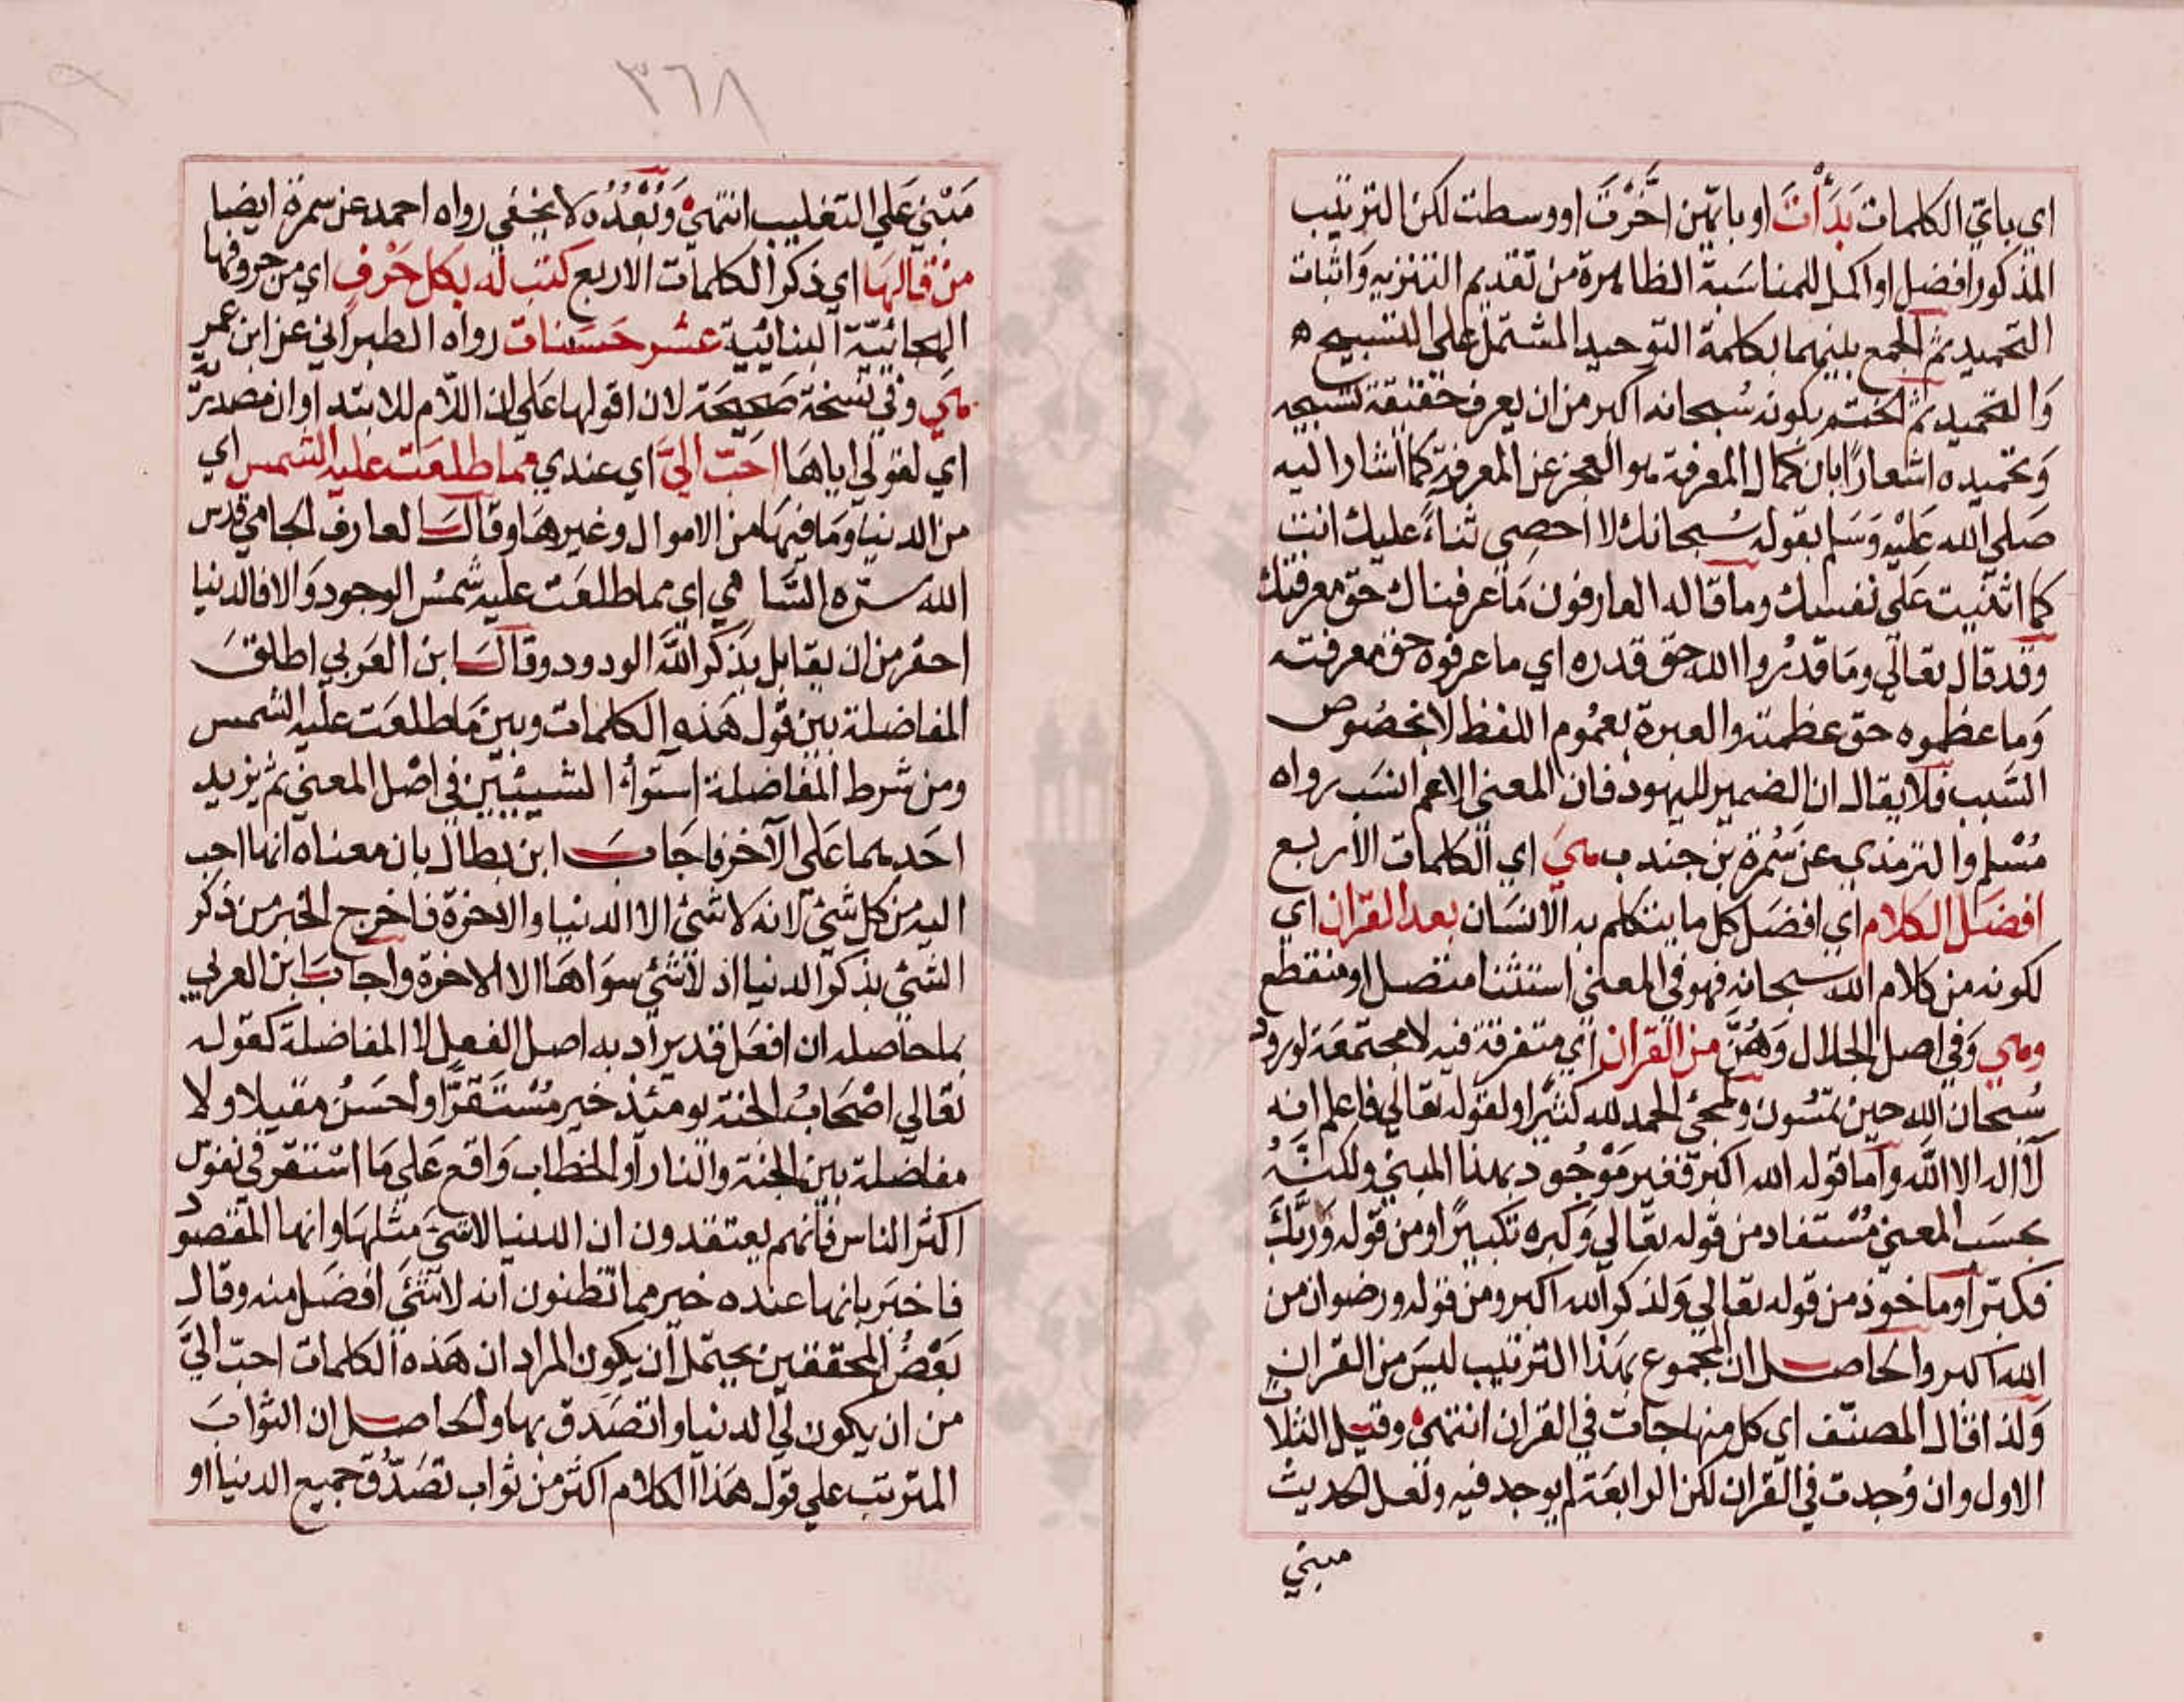 اي باي الكلمات بَدَأْتَ او بايّهن اخَّرْتَ او وسطت لكن الترتيب
المذكور افضل او اكمل للمناسَبة الظاهرة من تقديم التنزيه وَاثبات
التحميد ثم الجمع بينهما بكلمة التوحيد المشتمل على التسبيح
وَالتحميد ثم الختم بكونه سُبحانه اكبر من ان يعرف حقيقة تسبيحه
وَتحميده اشعارًا بان كمال المعرفة هو العجز عن المعرفة كما اشار اليه
صَلى الله عَليْه وَسَلم بقوله سُبحانك لا احصِي ثناءً عليك انت
كما اثنيت عَلى نفسك وما قاله العارفون مَا عرفناك حق معرفتك
وقد قال تعالي ومَا قدرُوا الله حق قدره اي ما عرفوه حق معرفته
وَما عظموه حق عظمته والعبرة بعمُوم اللفظ لا بخصُوص
السَّبب فلا يقال ان الضمير لليهود فان المعنى الاعم انسَب رواه
مُسْلم والترمذي عن سَمُرة بن جندب هيَ اي الكلمات الأربع
افضَل الكلام اي افضَل كل ما يتكلم به الانسَان بعد القران اي
لكونه من كلام الله سبحانه فهو في المعنى استثنا متصل او منقطع
وهي وَفي اصل الجلال وَهُنَّ من القران اي متفرقة فيه لا مجتمعَة لورود
سُبحان الله حين تمسُون ولمجئ الحمد لله كثيرًا ولقوله تعالي فاعلم انه
لا اله الا الله وَاما قوله الله اكبر فغير مَوْجُود بهذا المبني ولكنَّهُ
بحسَب المعنى مُسْتفاد من قوله تعَالي وَكبره تكبيرًا او من قوله وَربَّكَ
فكبّر او مَاخوذ من قوله تعالي وَلذكر الله اكبر ومن قوله ورضوان من
الله اكبر والحاصل ان المجموع بهَذا الترتيب ليسَ من القران
وَلذا قال المصنّف اي كل منها جات في القران انتهى وقيل الثلاث
الاول وان وُجدت في القران لكن الرابعَة لم يوجد فيه ولعل الحديث
مبني
٣٦٨
مَبْني عَلي التغليب انتهىٰ وَبُعْدُه لا يخفي رواه احمد عن سمرة ايضا
مَن قالهَا اي ذكر الكلمات الاربع كتب له بكل حَرْفٍ اي من حروفها
الهجائيّة البنائيّة عشر حَسَنات رواه الطبراني عن ابن عمر
هي وفي نسخة صَحيحَة لان اقولها عَلى ان اللّام للابتدا وان مصدريَّة
اي لقولي اياهَا احَبّ اليَّ اي عندي مما طلعَت عليه الشمس اي
من الدنيا وَمَا فيهَا من الاموال وغيرهَا وقالَ العارف الجامي قدس
الله سرّه السَّامي اي مما طلعَت عليه شمسُ الوجود وَالا فالدنيا
احقر من ان يقابل بذكر الله الودود وقالَ ابن العَربي اطلقَ
المفاضلة بين قول هَذه الكلمات وبين مَا طلعَت عليه الشمس
ومن شرط المفاضلة استوَاء الشيئين في اصْل المعنى ثم يزيد
احَدهما عَلى الآخر فاجَابَ ابن بطال بان معناه انها احب
اليه من كل شئ لانه لا شئ الا الدنيا والاخرة فاخرج الخبر من ذكر
الشئ بذكر الدنيا اذ لا شئ سوَاهَا الا الاخرة واجابَ ابن العربي
بما حَاصله ان افعَل قد يراد به اصل الفعل لا المفاضلة كقوله
تعَالي اصْحَابُ الجنة يومَئذ خير مُسْتَقرًّا وَاحسَنُ مَقيلا ولا
مفاضلة بين الجنة والنار او الخطاب وَاقع عَلى مَا استقر في نفوس
اكثر الناس فانهم يعتقدون ان الدنيا لا شئَ مثلهَا وانها المقصود
فاخبَر بانها عنده خير مما تظنون انه لا شئَ افضَل منه وقال
بَعْضُ المحققين يحتمل ان يكون المراد ان هَذه الكلمات احبّ اليَّ
من ان يكون لي الدنيا واتصَدق بها والحاصل ان الثوابَ
المترتب على قول هَذا الكلام اكثر من ثواب تصَدّق جميع الدنيا او